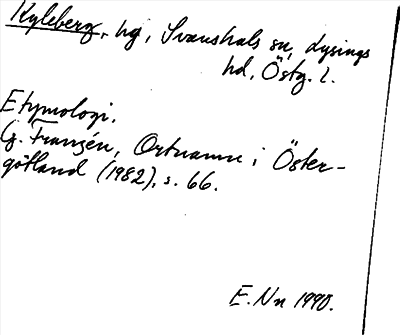 Kyleberg, hg, Svanshals sn, Lysings
hd, Östg. l.
Etymologi.
G. Franzén, Ortnamn i Öster-
götland (1982), s. 66.
E. Nn 1990.